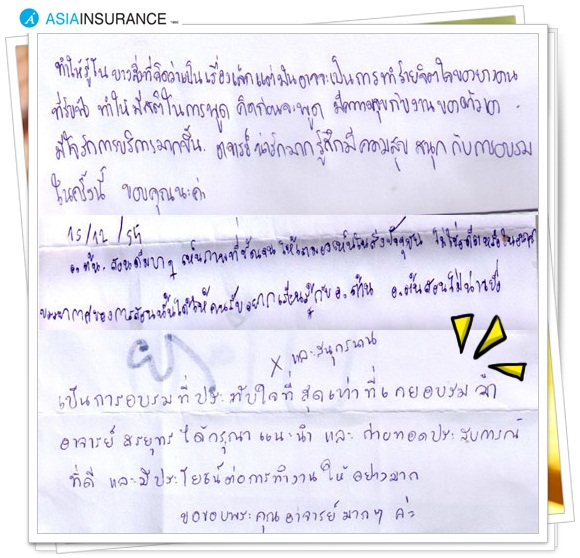 ASIAINSURANCE 1950
ทำให้รู้ใน บางสิ่งที่คิดว่าเป็นเรื่องเล็กแต่มันอาจจะเป็นการทำร้ายจิตใจของบางคน
ที่รับฟัง ทำให้มีสติในการพูด คิดก่อนจะพูด มีความสุขกับงานของตัวเอง
มีใจรักการบริการมากขึ้น. อาจารย์น่ารักมาก รู้สึกมีความสุข สนุก กับการอบรม
ในครั้งนี้ ขอบคุณนะค่ะ
15/12/54
อ.ต้น. สอนดีมาก ๆ เห็นภาพที่ชัดเจน
บรรยากาศของการสอนนั้นได้ให้คนรับอยากเรียนรู้กับอ.ต้น อ.ต้นสอนไม่น่าเบื่อ
X และสนุกสนาน
เป็นการอบรมที่ประทับใจที่สุดเท่าที่เคยอบรมมา
อาจารย์ สรยุทธ ได้กรุณาแนะนำ และ ถ่ายทอดประสบการณ์
ที่ดี และมีประโยชน์ต่อการทำงานให้อย่างมาก
ขอขอบพระคุณอาจารย์มากๆ ค่ะ